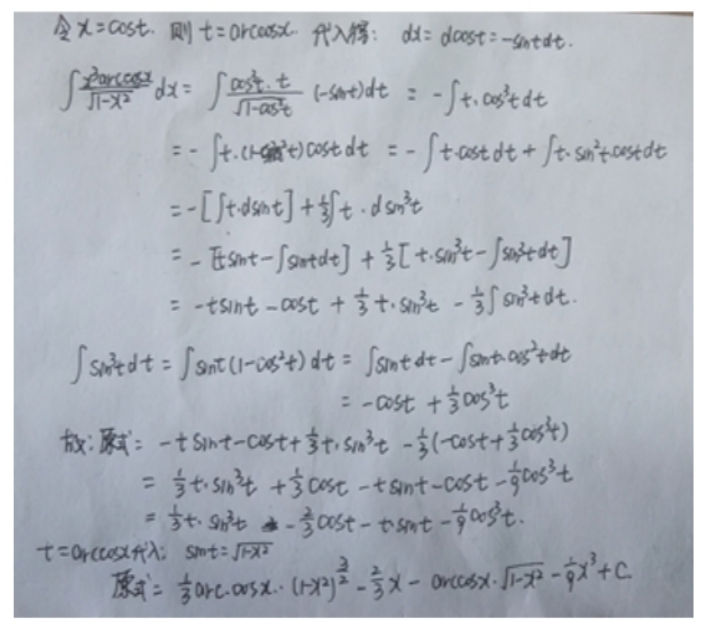 令 x=cost. 则 t=arccosx. 代入得: dx=dcost=-sintdt.
∫ x³arccosx/√(1-x²) dx = ∫ cos³t·t/√(1-cos²t) (-sint)dt = -∫t·cos³tdt
= -∫t·(1-sin²t)costdt = -∫t·costdt + ∫t·sin²t·costdt
= -[∫t·dsint] + 1/3∫t·dsin³t
= -[tsint-∫sintdt] + 1/3[t·sin³t-∫sin³tdt]
= -tsint-cost + 1/3t·sin³t - 1/3∫sin³tdt.
∫sin³tdt = ∫sint(1-cos²t)dt = ∫sintdt-∫sint·cos²tdt
= -cost + 1/3cos³t
故: 原式 = -tsint-cost+1/3t·sin³t - 1/3(-cost+1/3cos³t)
= 1/3t·sin³t + 1/3cost - tsint-cost - 1/9cos³t
= 1/3t·sin³t - 2/3cost - tsint - 1/9cos³t.
t=arccosx代入: sint=√(1-x²)
原式 = 1/3arc.cosx·(1-x²)^(3/2) - 2/3x - arccosx·√(1-x²) - 1/9x³+C